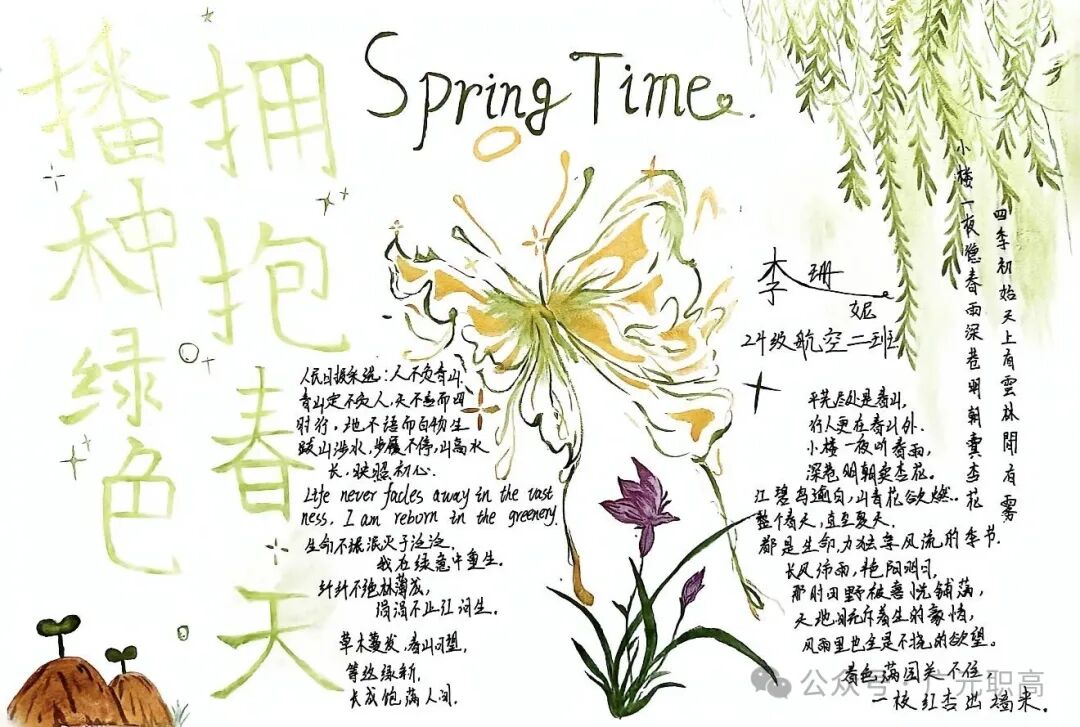 播种绿色
拥抱春天
Spring Time.
人民日报采选：人不负青山、
青山定不负人，天不言而四
时行，地不语而百物生
跋山涉水，步履不停，山高水
长，映照初心.
Life never fades away in the vast
ness, I am reborn in the greenery.
生命不堪泯灭于泛泛，
我在绿意中重生。
纤纤不绝林薄成，
涓涓不止江河生。
草木蔓发，春山可望，
绿新，
长成饱满人间.
李珊妮
24级航空二班
四季初始天上有雲林間有雾
小楼一夜隐春雨深巷明朝賣杏花
平芜尽处是春山，
行人更在春山外.
小楼一夜听春雨，
深巷明朝卖杏花。
江碧鸟逾白，山青花欲燃..
整个春天，直至夏天.
都是生命力独享风流的季节.
长风沛雨，艳阳明月，
那时田野被喜悦铺满，
天地间充斥着生的豪情，
风雨里也全是不挠的欲望。
春色满园关不住，
一枝红杏出墙来.
公众号·广元职高